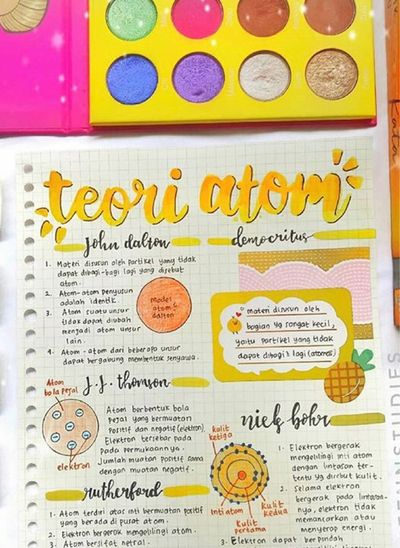 teori atom
john dalton
1. Materi disusun oleh partikel yang tidak
dapat dibagi-bagi lagi yang disebut
atom.
2. Atom-atom penyusun
adalah identik.
3. Atom suatu unsur
tidak dapat diubah
menjadi atom unsur
lain.
4. Atom-atom dari beberapa unsur
dapat bergabung membentuk senyawa.
Model
atom
dalton
democritus
materi disusun oleh
bagian yg sangat kecil,
yaitu partikel yang tidak
dapat dibagi lagi (atomos)
j.j. thomson
Atom
bola pejal
elektron
Atom berbentuk bola
pejal yang bermuatan
positif dan negatif (elektron).
Elektron tersebar pada
permukaannya.
Jumlah muatan positif sama
dengan muatan negatif.
niels bohr
kulit
ketiga
Inti atom
Kulit
kedua
Kulit
pertama
1. Elektron bergerak
mengelilingi inti atom
dengan lintasan ter-
tentu yg disebut kulit.
2. Selama elektron
bergerak pada lintasa-
nya, elektron tidak
memancarkan atau
menyerap energi.
3. Elektron dapat berpindah
rutherford
1. Atom terdiri atas inti bermuatan positif
yang berada di pusat atom.
2. Elektron bergerak mengelilingi atom.
3. Atom bersifat netral.